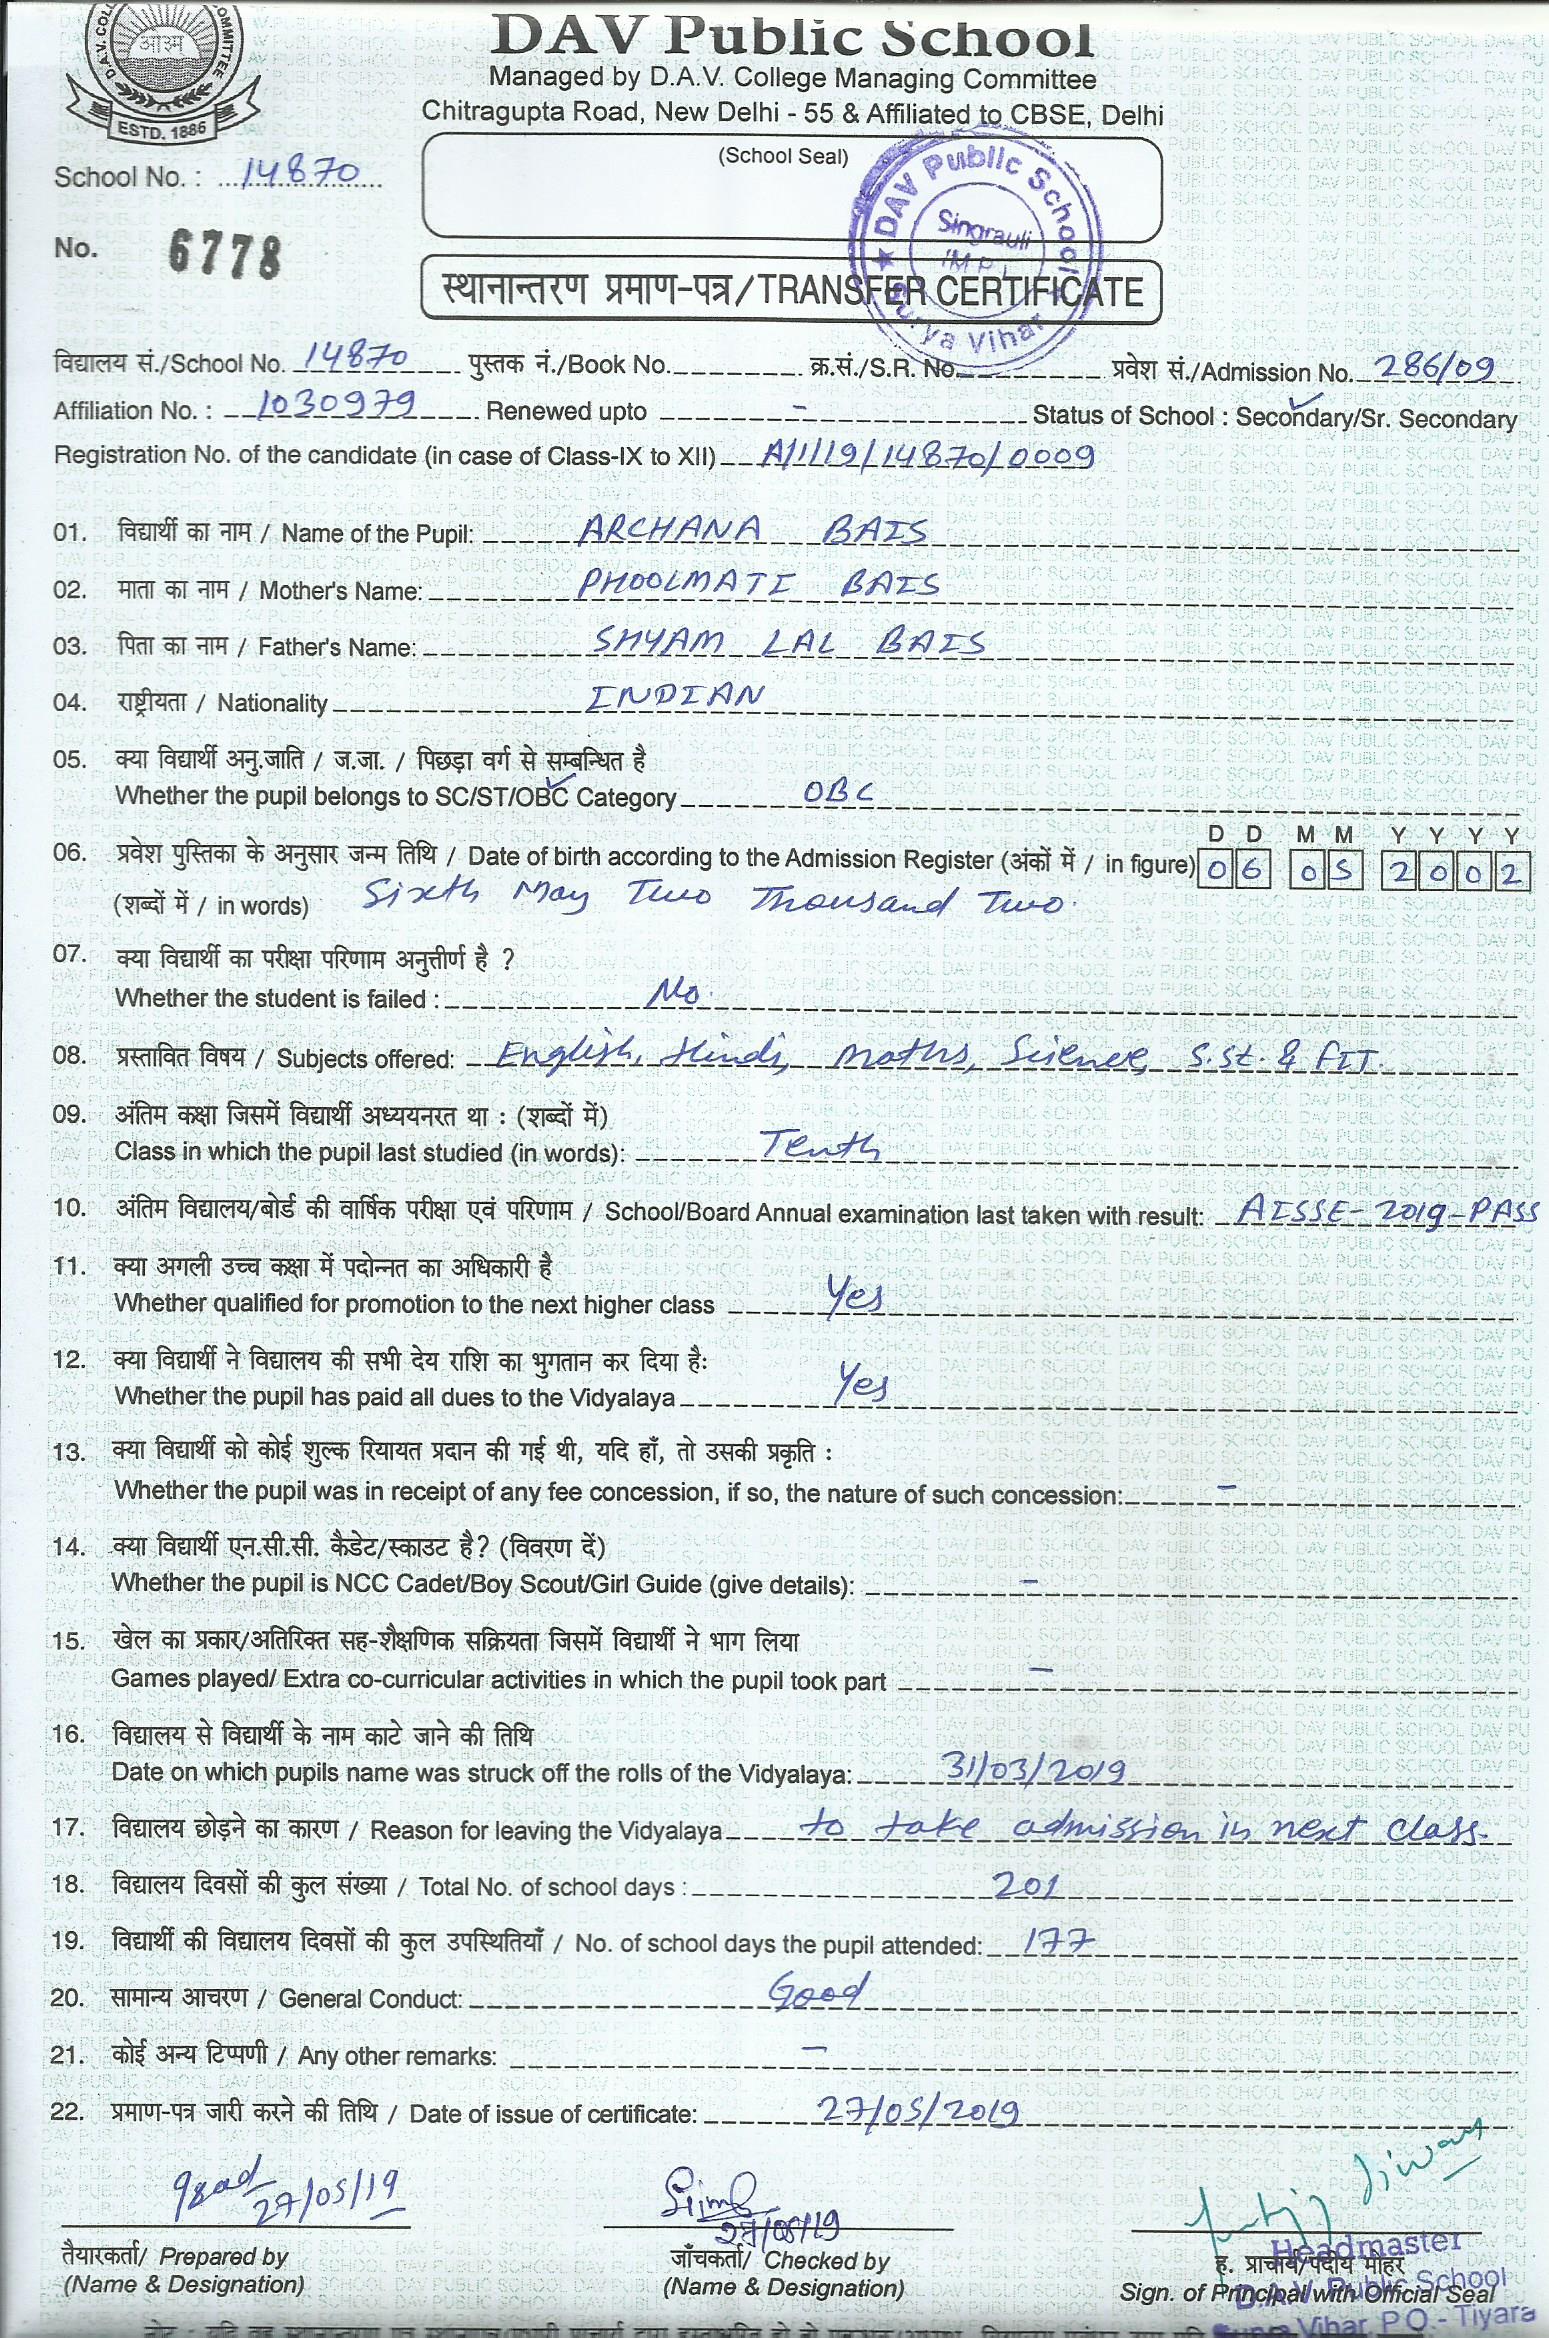 DAV Public School
Managed by D.A.V. College Managing Committee
Chitragupta Road, New Delhi - 55 & Affiliated to CBSE, Delhi
ओ३म्
ESTD. 1886
(School Seal)
DAV Public School
Singrauli
(M.P.)
Surya Vihar
School No. : 14870
No. 6778
स्थानान्तरण प्रमाण-पत्र/TRANSFER CERTIFICATE
विद्यालय सं./School No. 14870 पुस्तक नं./Book No. क्र.सं./S.R. No. प्रवेश सं./Admission No. 286/09
Affiliation No. : 1030979 Renewed upto - Status of School : Secondary/Sr. Secondary
Registration No. of the candidate (in case of Class-IX to XII) A/1/19/14870/0009
01. विद्यार्थी का नाम / Name of the Pupil: ARCHANA BAIS
02. माता का नाम / Mother's Name: PHOOLMATI BAIS
03. पिता का नाम / Father's Name: SHYAM LAL BAIS
04. राष्ट्रीयता / Nationality INDIAN
05. क्या विद्यार्थी अनु.जाति / ज.जा. / पिछड़ा वर्ग से सम्बन्धित है
Whether the pupil belongs to SC/ST/OBC Category OBC
D D M M Y Y Y Y
06. प्रवेश पुस्तिका के अनुसार जन्म तिथि / Date of birth according to the Admission Register (अंकों में / in figure) 06 05 2002
(शब्दों में / in words) Sixth May Two Thousand Two.
07. क्या विद्यार्थी का परीक्षा परिणाम अनुत्तीर्ण है ?
Whether the student is failed : No.
08. प्रस्तावित विषय / Subjects offered: English, Hindi, Maths, Science, S.St. & FIT.
09. अंतिम कक्षा जिसमें विद्यार्थी अध्ययनरत था : (शब्दों में)
Class in which the pupil last studied (in words): Tenth
10. अंतिम विद्यालय/बोर्ड की वार्षिक परीक्षा एवं परिणाम / School/Board Annual examination last taken with result: AISSE-2019-PASS
11. क्या अगली उच्च कक्षा में पदोन्नत का अधिकारी है
Whether qualified for promotion to the next higher class Yes
12. क्या विद्यार्थी ने विद्यालय की सभी देय राशि का भुगतान कर दिया है:
Whether the pupil has paid all dues to the Vidyalaya Yes
13. क्या विद्यार्थी को कोई शुल्क रियायत प्रदान की गई थी, यदि हाँ, तो उसकी प्रकृति :
Whether the pupil was in receipt of any fee concession, if so, the nature of such concession: -
14. क्या विद्यार्थी एन.सी.सी. कैडेट/स्काउट है? (विवरण दें)
Whether the pupil is NCC Cadet/Boy Scout/Girl Guide (give details): -
15. खेल का प्रकार/अतिरिक्त सह-शैक्षणिक सक्रियता जिसमें विद्यार्थी ने भाग लिया
Games played/ Extra co-curricular activities in which the pupil took part -
16. विद्यालय से विद्यार्थी के नाम काटे जाने की तिथि
Date on which pupils name was struck off the rolls of the Vidyalaya: 31/03/2019
17. विद्यालय छोड़ने का कारण / Reason for leaving the Vidyalaya to take admission in next class.
18. विद्यालय दिवसों की कुल संख्या / Total No. of school days : 201
19. विद्यार्थी की विद्यालय दिवसों की कुल उपस्थितियाँ / No. of school days the pupil attended: 177
20. सामान्य आचरण / General Conduct: Good
21. कोई अन्य टिप्पणी / Any other remarks: -
22. प्रमाण-पत्र जारी करने की तिथि / Date of issue of certificate: 27/05/2019
27/05/19 27/05/19
तैयारकर्ता/ Prepared by जाँचकर्ता/ Checked by ह. प्राचार्य/पदीय मोहर
(Name & Designation) (Name & Designation) Sign. of Principal with Official Seal
Headmaster
D.A.V. Public School
Vihar, P.O.- Tiyara